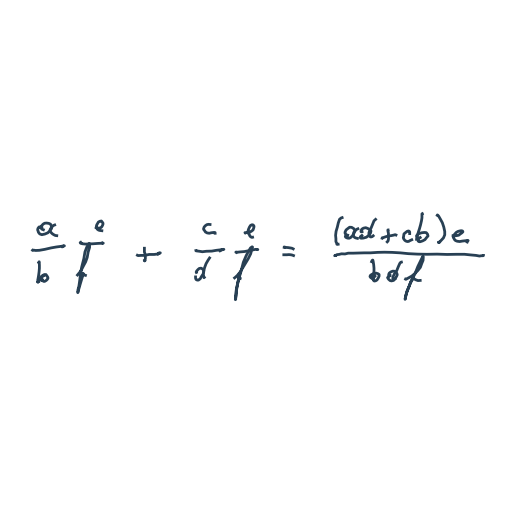 \frac{a}{b} \frac{e}{f} + \frac{c}{d} \frac{e}{f} = \frac{(ad+cb)e}{bdf}